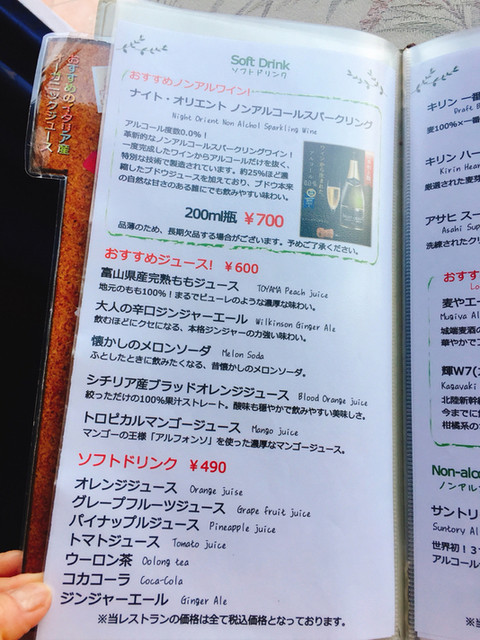 おすすめのイタリア産
オーガニックジュース
Soft Drink
ソフトドリンク
おすすめノンアルワイン!
ナイト・オリエント ノンアルコールスパークリング
Night Orient Non Alchol Sparkling Wine
アルコール度数0.0%!
革新的なノンアルコールスパークリングワイン!
一度完成したワインからアルコールだけを抜く、
特別な技術で製造されています。約25%ほど濃
縮したブドウジュースを加えており、ブドウ本来
の自然な甘さのある誰にでも飲みやすい味わい。
200ml瓶 ￥700
品薄のため、長期欠品する場合がございます。予めご了承ください。
おすすめジュース! ￥600
富山県産完熟ももジュース TOYAMA Peach juice
地元のもも100%!まるでピューレのような濃厚な味わい。
大人の辛口ジンジャーエール Wilkinson Ginger Ale
飲むほどにクセになる、本格ジンジャーの力強い味わい。
懐かしのメロンソーダ Melon Soda
ふとしたときに飲みたくなる、昔懐かしのメロンソーダ。
シチリア産ブラッドオレンジジュース Blood Orange juice
絞っただけの100%果汁ストレート。酸味も穏やかで飲みやすい美味しさ。
トロピカルマンゴージュース Mango juice
マンゴーの王様「アルフォンソ」を使った濃厚なマンゴージュース。
ソフトドリンク ￥490
オレンジジュース Orange juise
グレープフルーツジュース Grape fruit juice
パイナップルジュース Pineapple juice
トマトジュース Tomato juice
ウーロン茶 Oolong tea
コカコーラ Coca-Cola
ジンジャーエール Ginger Ale
※当レストランの価格は全て税込価格となっております。
キリン 一番
Draft B
麦100%×一番
キリン ハー
Kirin Hear
厳選された麦芽
アサヒ スー
Asahi Sup
洗練されたク
おすす
Lo
麦やエー
Mugiya Al
城端麦酒の
華やかでフ
輝W7(
Kagayaki
北陸新幹線
今までに
柑橘系の
Non-alc
ノンアル
サントリ
Suntory Al
世界初!3つ
アルコール